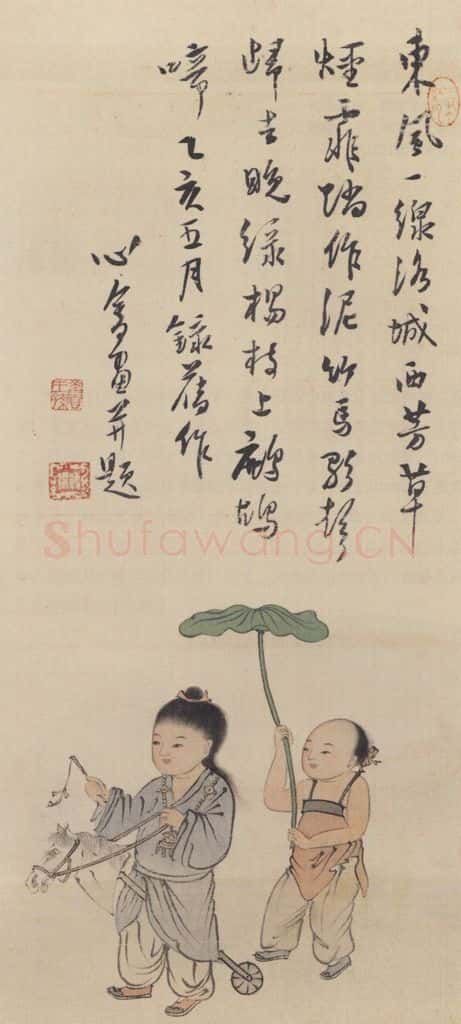 東風一線洛城西芳草
煙霏踏作泥竹馬
歸去晚綠楊枝上鷓鴣
啼乙亥五月錄舊作
心畬畫并題
Shufawang.CN